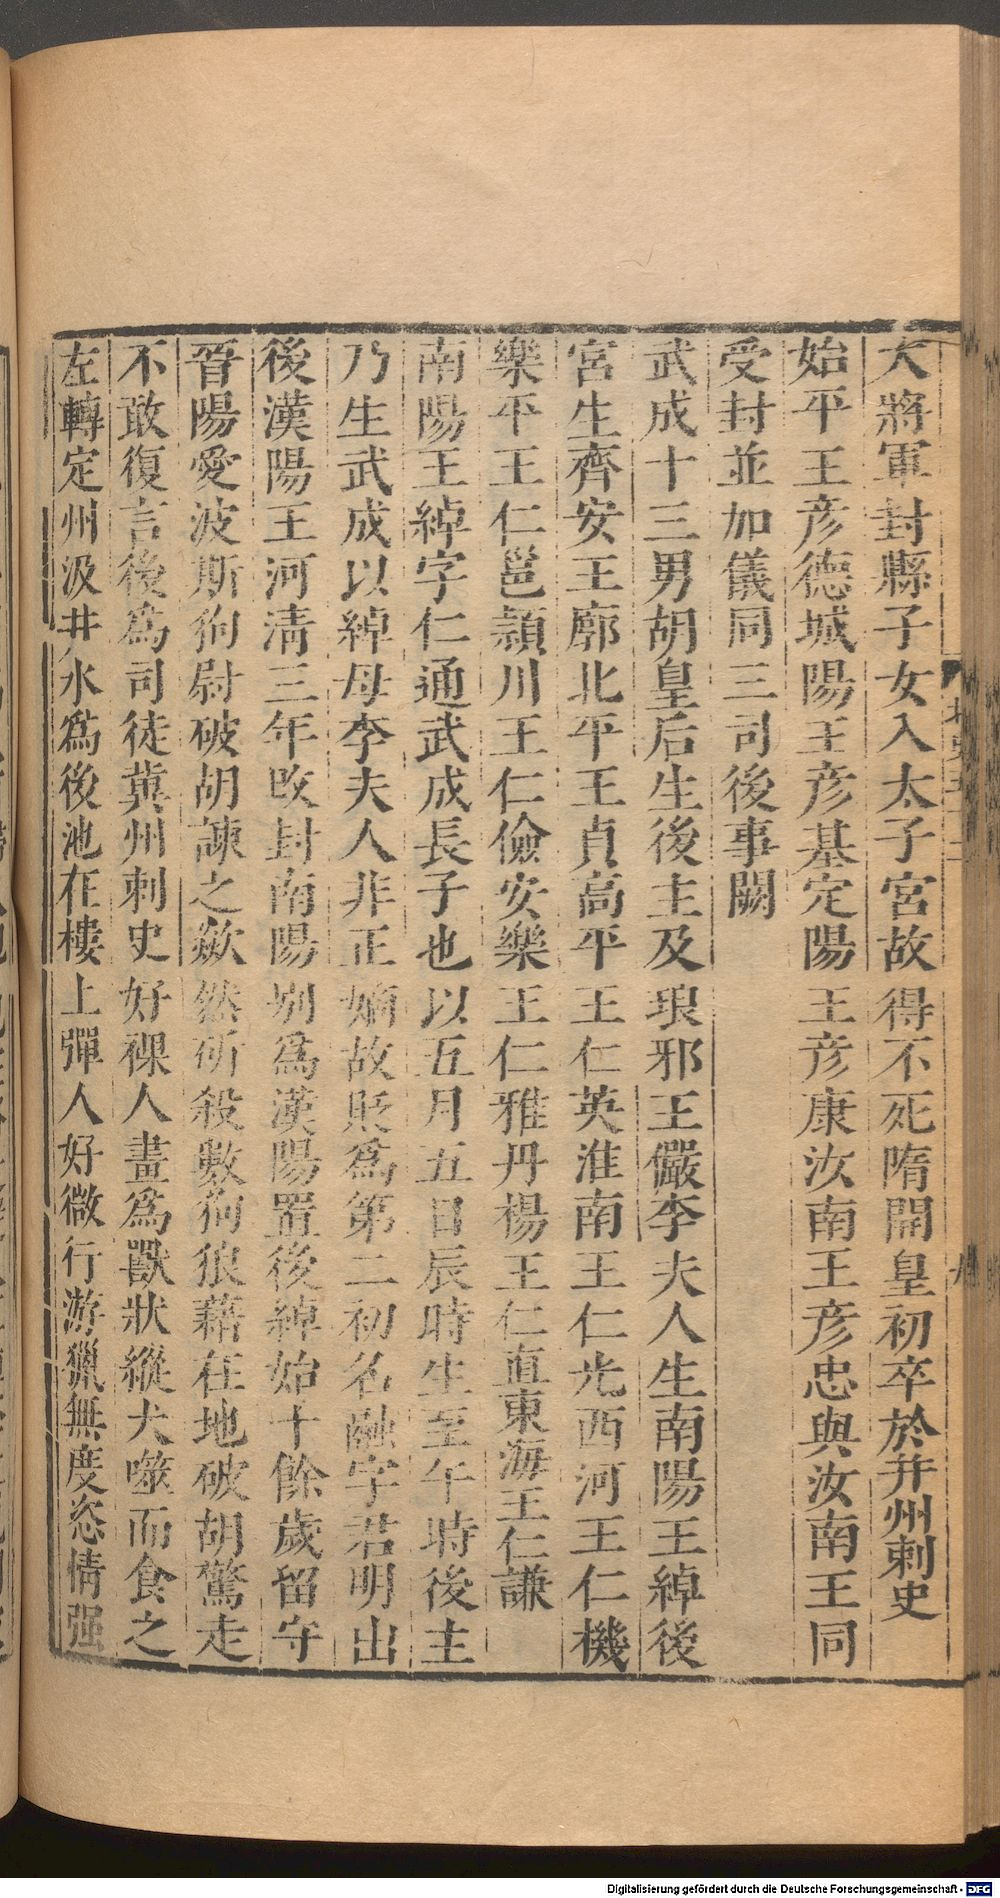 大將軍封縣子女入太子宮故得不死隋開皇初卒於并州刺史
始平王彥德城陽王彥基定陽王彥康汝南王彥忠與汝南王同
受封並加儀同三司後事闕
武成十三男胡皇后生後主及琅邪王儼李夫人生南陽王綽後
宮生齊安王廓北平王貞高平王仁英淮南王仁光西河王仁機
樂平王仁邕潁川王仁儉安樂王仁雅丹楊王仁直東海王仁謙
南陽王綽字仁通武成長子也以五月五日辰時生至午時後主
乃生武成以綽母李夫人非正嫡故貶為第二初名融字君明出
後漢陽王河清三年改封南陽別為漢陽置後綽始十餘歲留守
晉陽愛波斯狗尉破胡諫之欻然斫殺數狗狼藉在地破胡驚走
不敢復言後為司徒冀州刺史好裸人畫為獸狀縱犬噬而食之
左轉定州汲井水為後池在樓上彈人好微行游獵無度恣情强
Digitalisierung gefördert durch die Deutsche Forschungsgemeinschaft - DFG